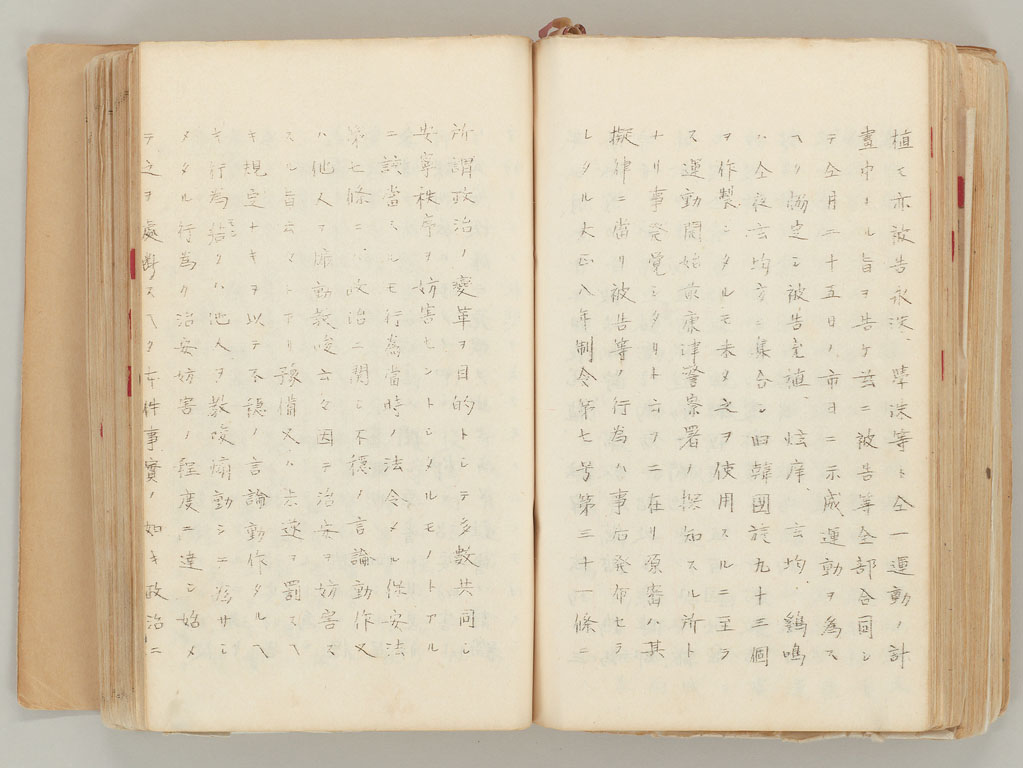 植モ亦被告永深、陸洙等ト仝一運動ノ計
畫中ナル旨ヲ告ケ玆ニ被告等全部合同シ
テ仝月二十五日ノ市日ニ示威運動ヲ為ス
ヘク協定シ被告宅植、炫庠、玄均、鷄鳴
ハ仝夜玄均方ニ集合シ旧韓國旗九十三個
ヲ作製シタルモ未タ之ヲ使用スルニ至ラ
ス運動開始前康津警察署ノ探知スル所ト
ナリ事発覚シタリト云フニ在リ原審ハ其
擬律ニ當リ被告等ノ行為ハ事后発布セラ
レタル大正八年制令第七号第三十一條ニ
所謂政治ノ變革ヲ目的トシテ多数共同シ
安寧秩序ヲ妨害セントシタルモノトアル
ニ該當シルモ行為當時ノ法令タル保安法
第七條ニハ政治ニ関シ不穏ノ言論動作又
ハ他人ヲ煽動教唆云々因テ治安ヲ妨害ス
スル旨云々トアリ豫備又ハ未遂ヲ罰スヘ
キ規定ナキヲ以テ不穏ノ言論動作タルヘ
キ行為若クハ他人ヲ教唆煽動シニ為サシ
メタル行為カ治安妨害ノ程度ニ達シ始メ
テ之ヲ處断スヘク本件事實ノ如キ政治ニ